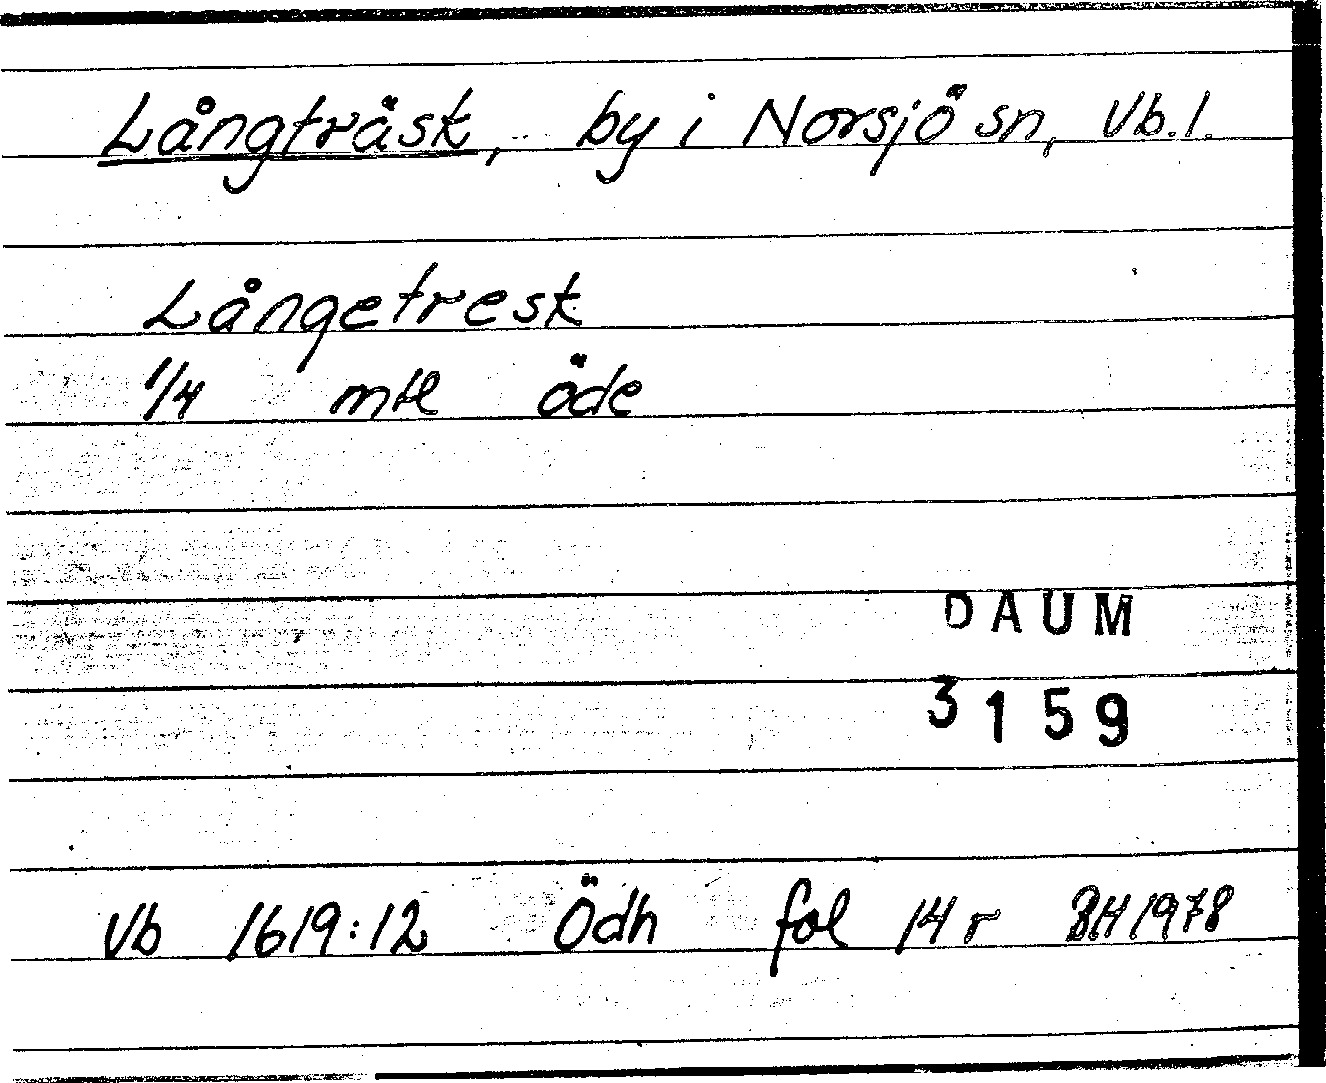 Långträsk, by i Norsjö sn, Vb. l.
Långetresk
1/4 mtl öde
DAUM
3159
Vb 1619:12 Ödh fol 14 r BH 1978